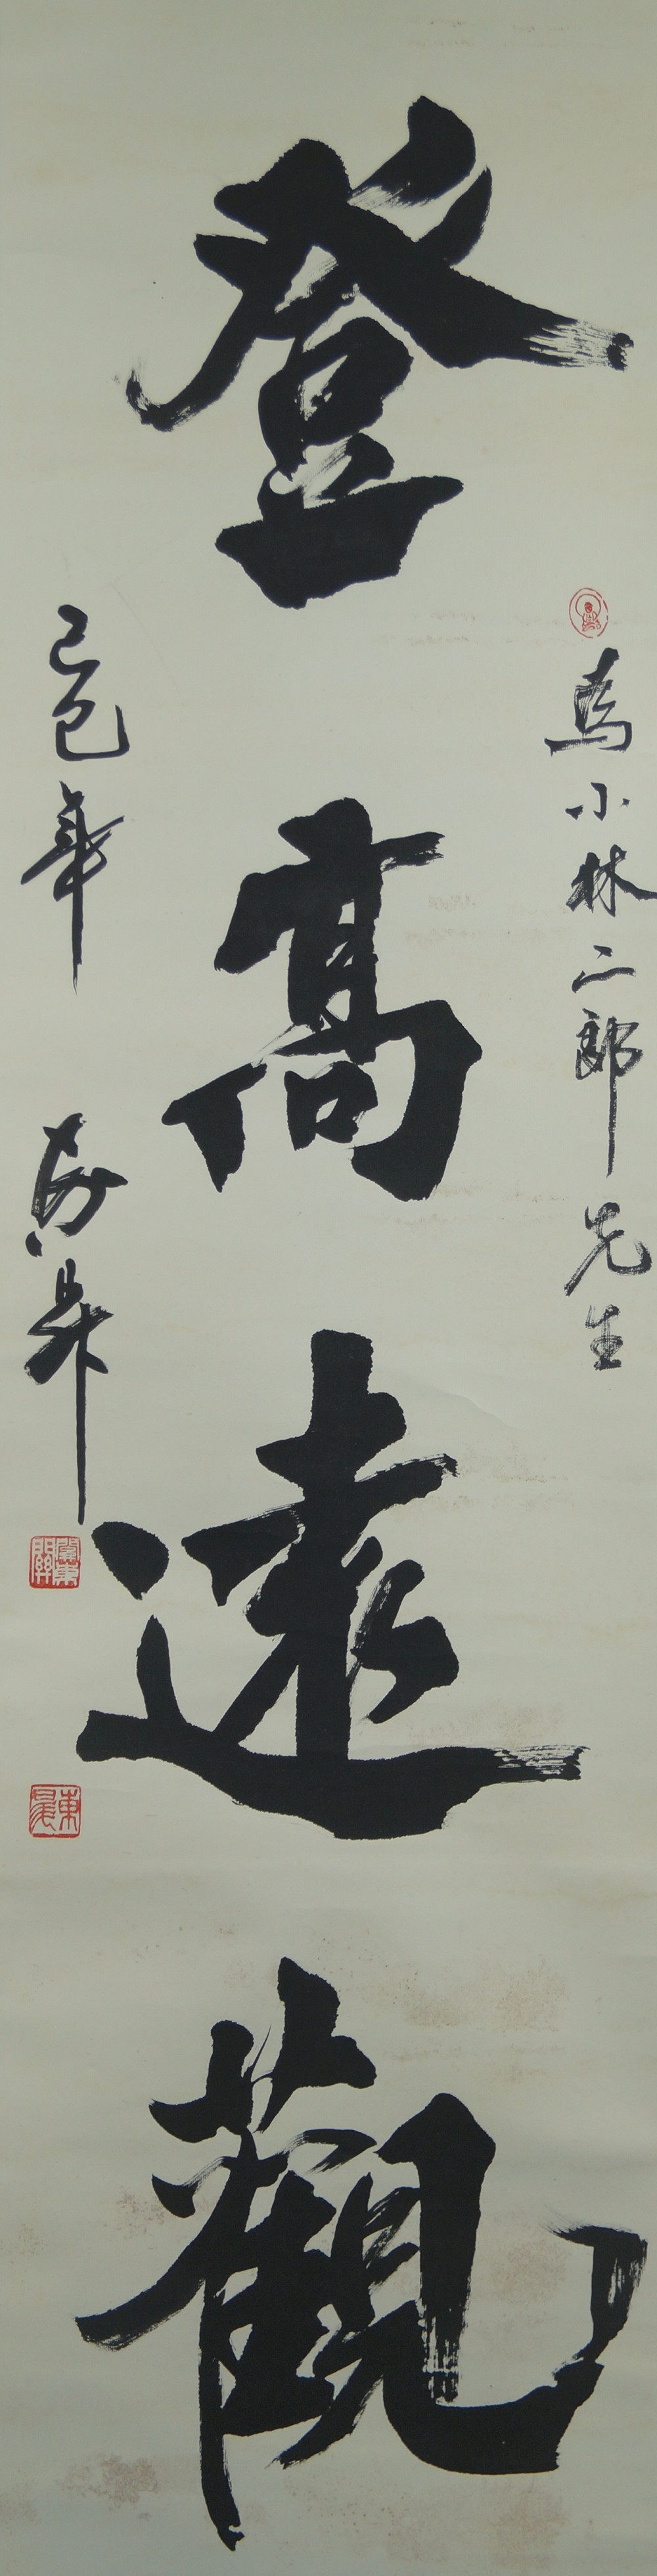 為小林二郎先生
登高遠觀
己巳年